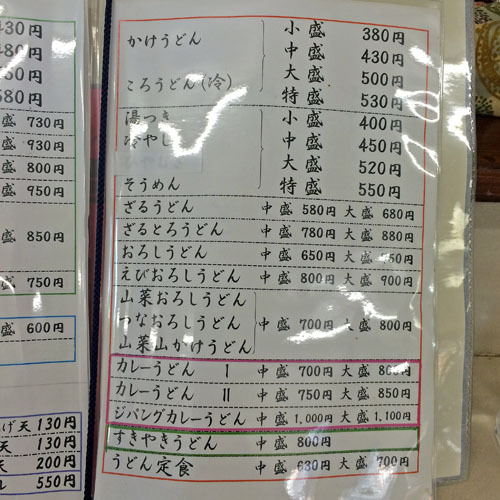 430円
480円
580円
盛 730円
盛 930円
盛 800円
盛 950円
盛 850円
盛 750円
盛 600円
げ天 130円
天 130円
天 200円
550円
かけうどん
ころうどん(冷)
小盛 380円
中盛 430円
大盛 500円
特盛 530円
湯つき
冷やし
そうめん
小盛 400円
中盛 450円
大盛 520円
特盛 550円
ざるうどん 中盛 580円 大盛 680円
ざるとろうどん 中盛 780円 大盛 880円
おろしうどん 中盛 650円 大盛 円
えびおろしうどん 中盛 800円 大盛 900円
山菜おろしうどん
つなおろしうどん 中盛 700円 大盛 800円
山菜山かけうどん
カレーうどん Ⅰ 中盛 700円 大盛 800円
カレーうどん Ⅱ 中盛 750円 大盛 850円
ジパングカレーうどん 中盛 1,000円 大盛 1,100円
すきやきうどん 中盛 800円
うどん定食 中盛 630円 大盛 700円